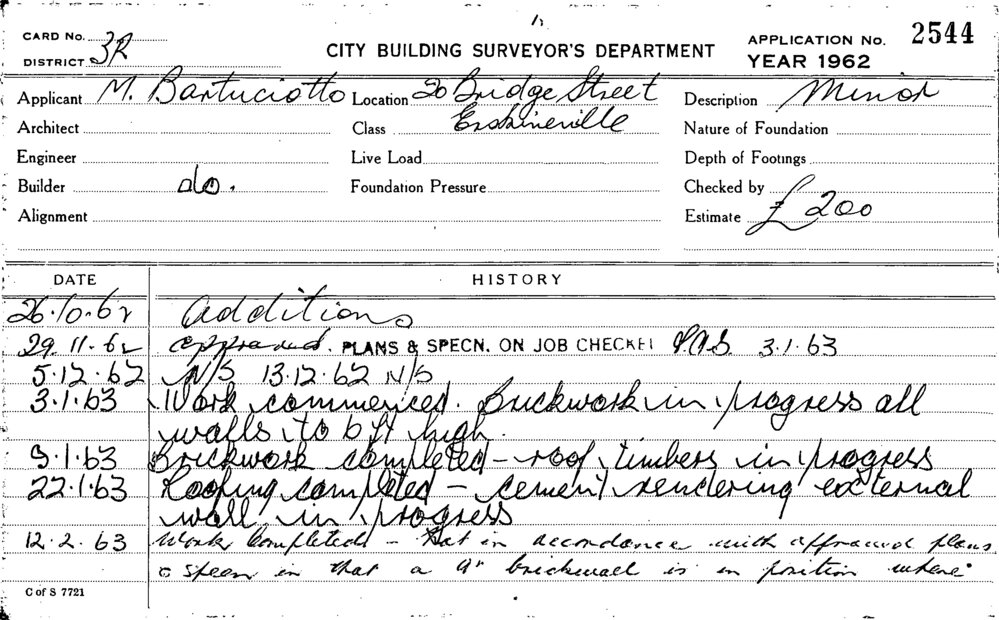 CARD No. 3R
DISTRICT
CITY BUILDING SURVEYOR'S DEPARTMENT
APPLICATION No. 2544
YEAR 1962
Applicant M. Bartuciotto Location 20 Bridge Street Description Minor
Architect Class Erskineville Nature of Foundation
Engineer Live Load Depth of Footings
Builder do. Foundation Pressure Checked by
Alignment Estimate £200
DATE HISTORY
26.10.62 Additions
29.11.62 approved. PLANS & SPECN. ON JOB CHECKE 3.1.63
5.12.62 N/S 13.12.62 N/S
3.1.63 Work commenced. Brickwork in progress all
walls to 6 ft high.
9.1.63 Brickwork completed - roof timbers in progress
22.1.63 Roofing completed - cement rendering external
wall in progress
12.2.63 Work Completed - Not in accordance with approved plans
& specn in that a 9" brickwall is in position where
C of S 7721